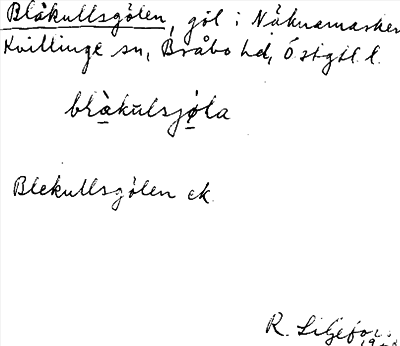 Blåkullsgölen, göl i Näknamarken
Kvillinge sn, Bråbo hd, Östgtl. l.
blàkulsjöla
Blekullsgölen ek.
R. Liljefors